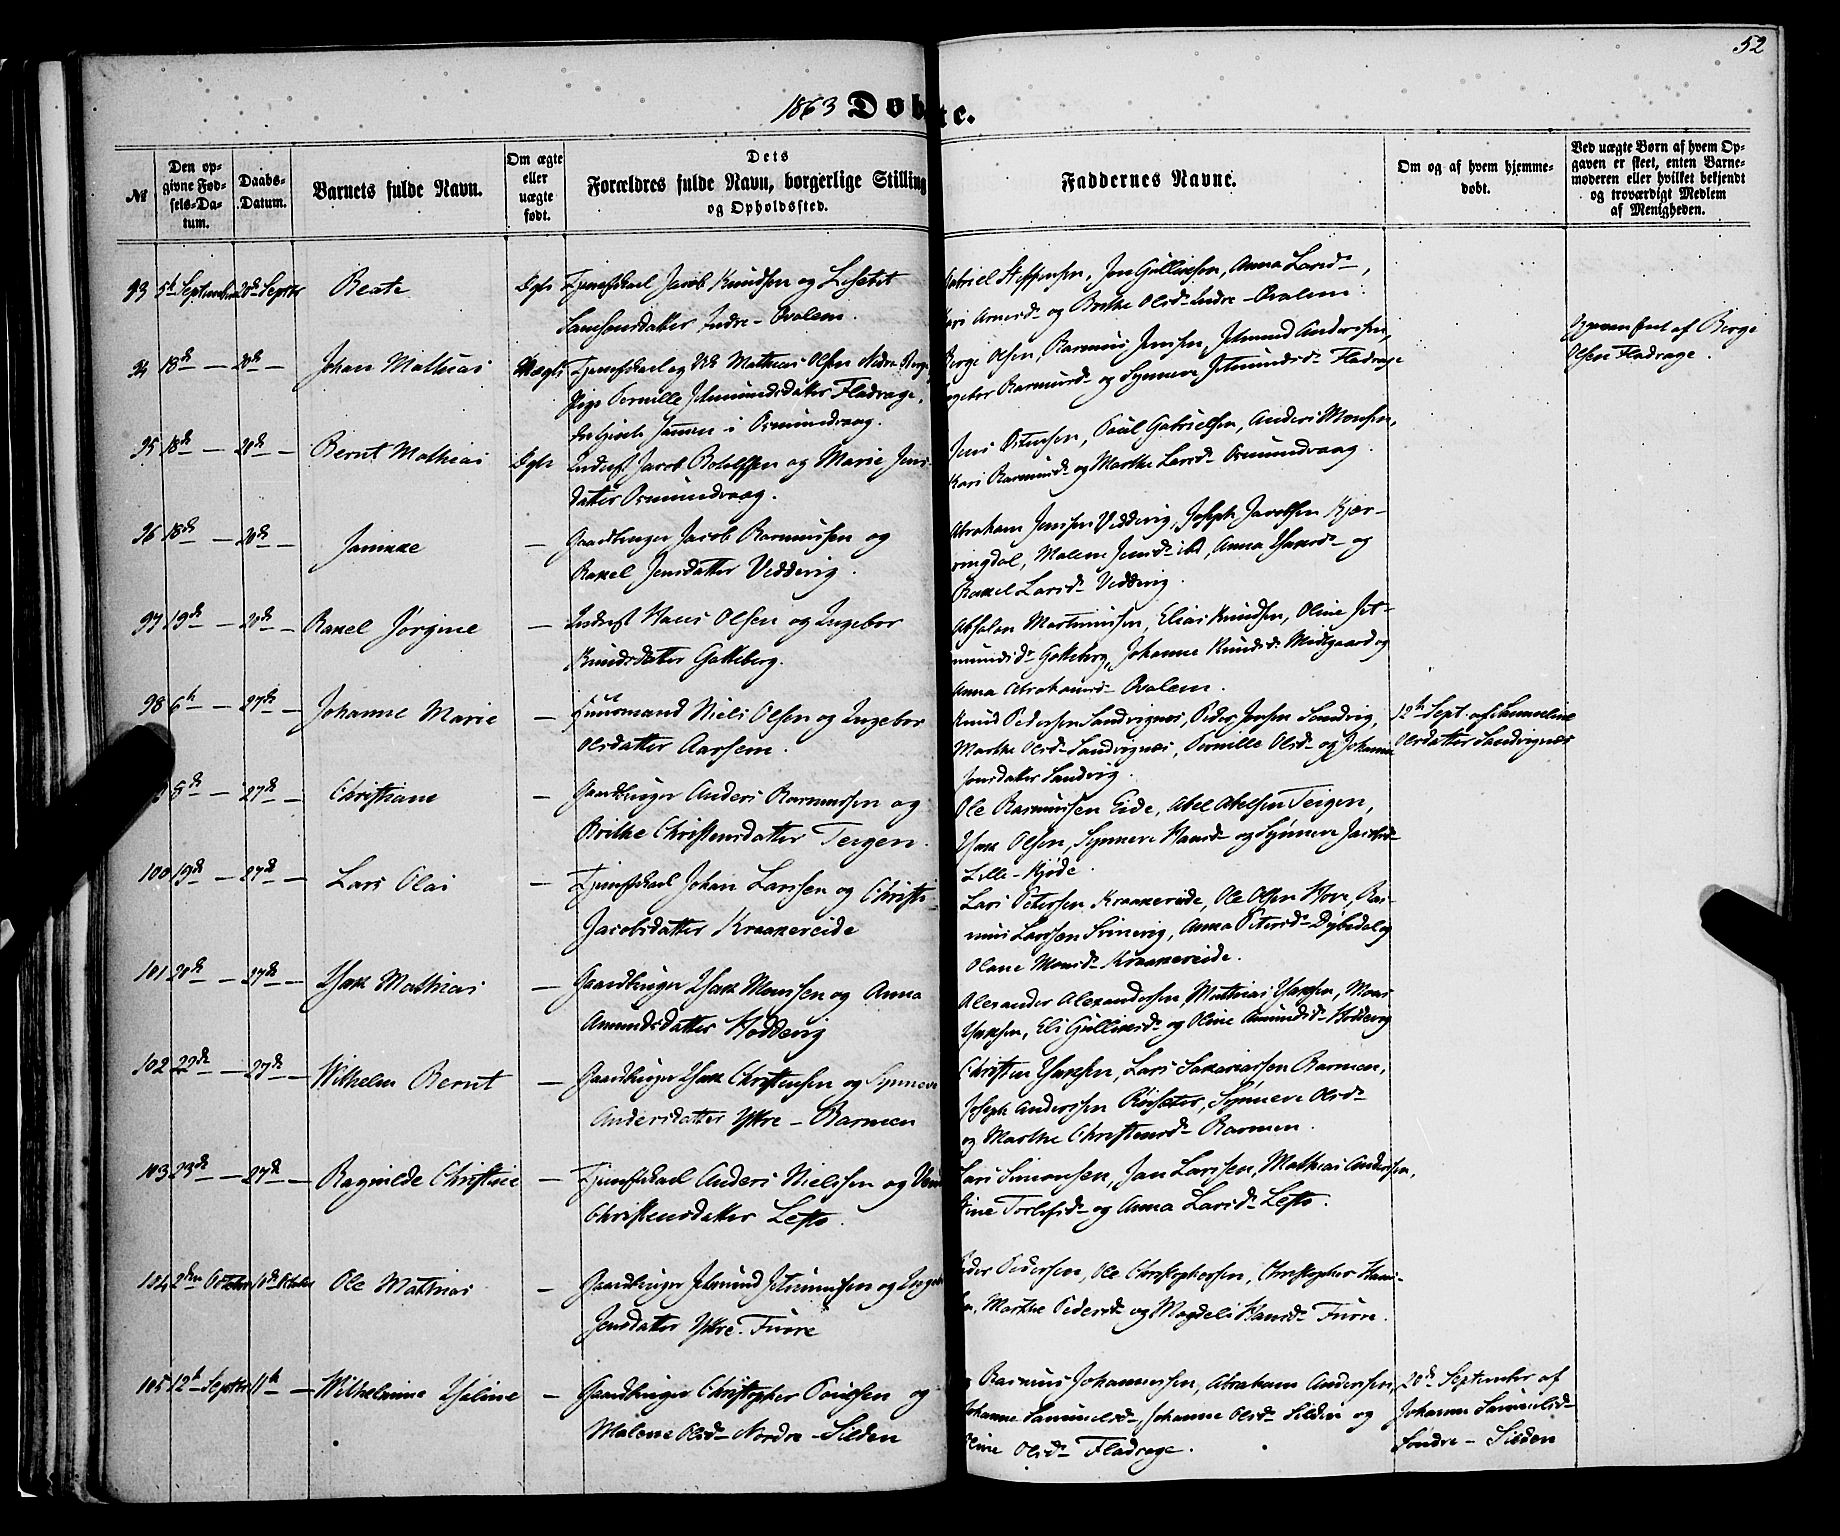 52
1863 Døbte.
№
Den op-
givne Fød-
sels-Da-
tum.
Daabs-
Datum.
Barnets fulde Navn.
Om ægte
eller
uægte
født.
Dets
Forældres fulde Navn, borgerlige Stilling
og Opholdssted.
Faddernes Navne.
Om og af hvem hjemme-
døbt.
Ved uægte Børn af hvem Op-
gaven er skeet, enten Barne-
moderen eller hvilket bekjendt
og troværdigt Medlem
af Menigheden.
93 5th September 20de Septbr Beate Ægte Tjenestekarl Jacob Knudsen og Lisebet
Samsonsdatter Indre-Qvalem.
Gabriel Steffensen, Jon Gullicksen, Anna Larsd-,
Kari Arnesd- og Brithe Olsd- Indre-Qvalem.
94 18de - 20de - Johan Mathias Uægte Tjenestekarl og Mathias Olsen Nedre-Berge,
Pige Pernille Jetmundsdatter Fladrage,
i Osmundvaag.
Berge Olsen, Rasmus Jensen, Jetmund Anderssen,
Ingebor Rasmusd- og Synneve Jetmundsd- Fladrage
Opgaven skeet af Berge
Olsen Fladrage.
95 18de - 20de - Bernt Mathias Ægte Inderst Jacob Botolfsen og Marie Jens-
datter Osmundvaag.
Jens Ostensen, Paul Gabrielsen, Anders Monsen,
Kari Rasmusd- og Marthe Larsd- Osmundvaag.
96 18de - 20de - Jannike - Gaardbruger Jacob Rasmussen og
Rakel Jensdatter Vedvig.
Abraham Jensen Vedvig, Joseph Jacobsen Kjær-
ringdal, Malene Jensd- ibd, Anna Isaksd- og
Rakel Larsd- Vedvig.
97 19de - 20de - Rakel Jørgine - Inderst Hans Olsen og Ingebor
Knudsdatter Gotteberg.
Absalon Martinussen, Elias Knudsen, Oline Jet-
mundsd- Gotteberg, Johanne Knudsd- Midtgaard og
Anna Abrahamsd- Qvalem.
98 6th - 27de - Johanne Marie - Huusmand Niels Olsen og Ingebor
Olsdatter Aarsem.
Knud Pedersen Sandvignæs, Peder Jonsen Sandvig,
Marthe Olsd- Sandvignæs, Pernille Olsd- og Johanne
Jonsdatter Sandvig.
12th Sept. af Sanneline
Olsdatter Sandvignæs
8de - 27de - Christiane - Gaardbruger Anders Rasmussen og
Brithe Christensdatter Teigen.
Ole Rasmussen Eide, Abel Abelsen Teigen,
Isak Olsen, Synneve Hansd- og Synneve Jacobsd-
Lille-Kjøde.
100 19de - 27de - Lars Olai - Tjenestekarl Johan Larssen og Christi
Jacobsdatter Kraakereide
Lars Petersen Kraakereide, Ole Olsen Hove, Ras-
mus Larssen Sevrevig, Anna Petersd- Dybedal og
Olane Monsd- Kraakereide.
101 20de - 27de - Isak Mathias - Gaardbruger Isak Monssen og Anna
Amundsdatter Hoddevig
Alexander Alexandersen, Mathias Isaksen, Mons
Isaksen, Eli Gulliksd- og Oline Amundsd- Hoddevig
102 22de - 27de - Wilhelm Bernt - Gaardbruger Isak Christensen og Synneve
Andersdatter Yttre-Barmen
Christen Isaksen, Lars Sakariassen Barmen,
Joseph Anderssen Røisæter, Synneve Olsd-
og Marthe Christensd- Barmen.
103 23de - 27de - Ragnilde Christine - Tjenestekarl Anders Nielssen og
Christensdatter Lefto.
Lars Simonsen, Jan Larssen, Mathias Anderssen,
Stine Torlefsd- og Anna Larsd- Lefto.
104 2den October 11te October Ole Mathias - Gaardbruger Jetmund Jetmundsen og Ingebor
Jensdatter Yttre-Furre
Peder Pedersen, Ole Christophersen, Christopher Hans-
sen, Marthe Pedersd- og Magdeli Hansd- Furre.
105 12th Septbr 11th - Wilhelmine Iseline - Gaardbruger Christopher Poulsen og
Malene Olsd- Nordre-Silden
Rasmus Johannessen, Abraham Anderssen,
Johanne Samuelsd-, Johanne Olsd- Silden og
Oline Olsd- Fladrage.
20de September af
Johanne Samuelsd-
Søndre-Silden